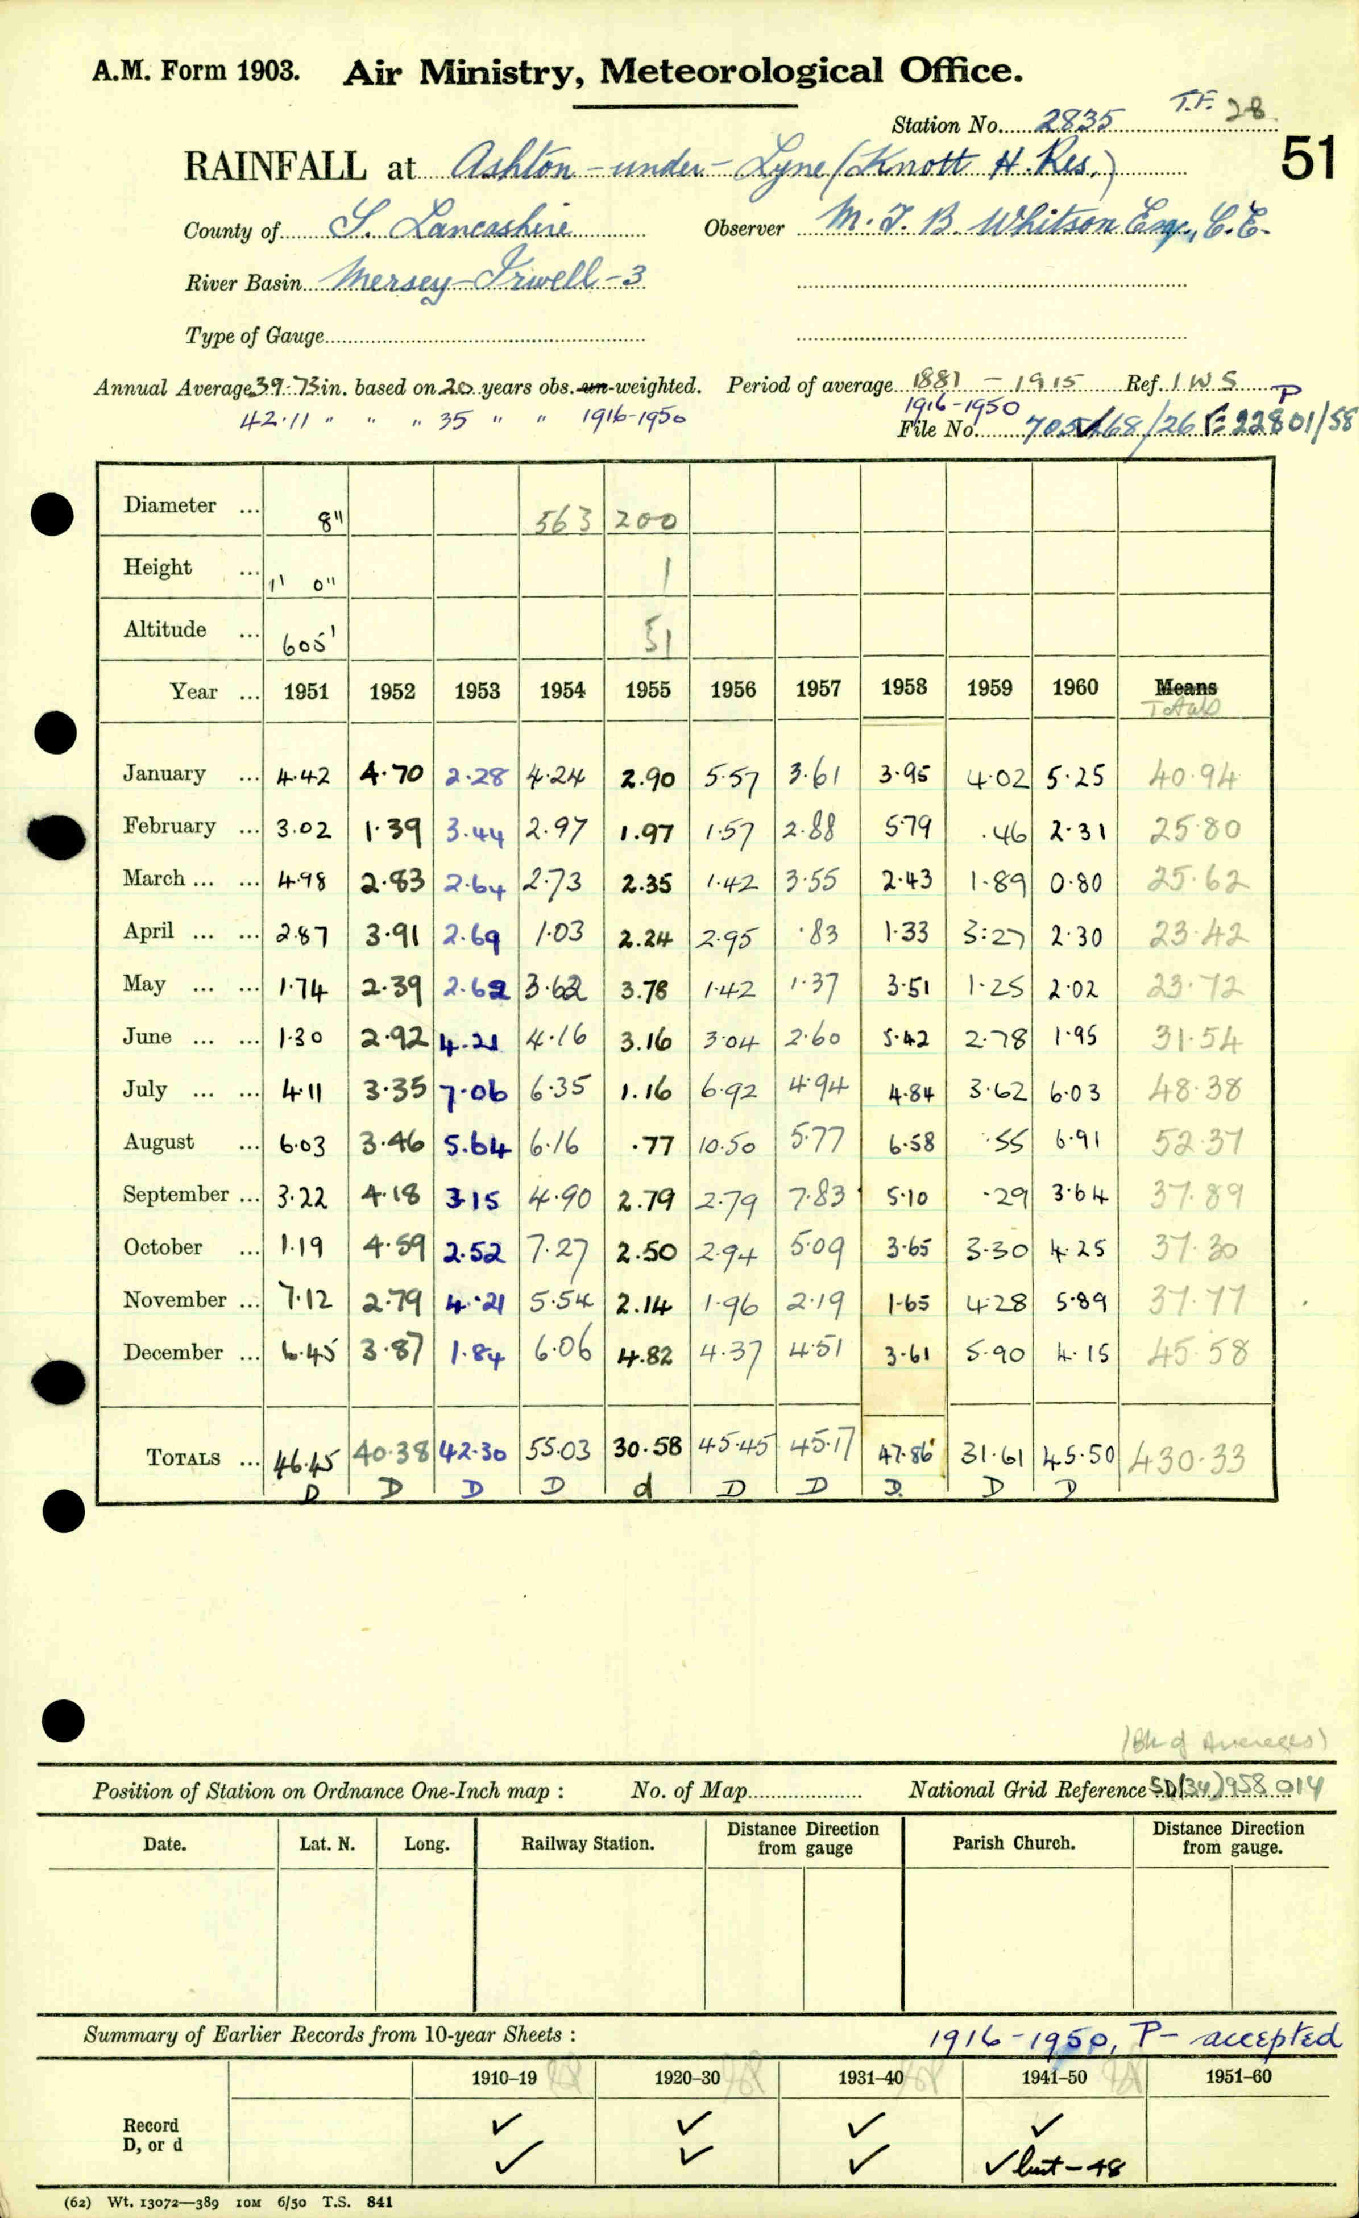 A.M. Form 1903. Air Ministry, Meteorological Office.
Station No. 2835 T.F. 28
51
RAINFALL at Ashton-under-Lyne (Knott H. Res.)
County of S. Lancashire Observer M. J. B. Whitson Esq., C.E.
River Basin Mersey-Irwell-3
Type of Gauge
Annual Average 39.73 in. based on 20 years obs. un-weighted. Period of average 1881 - 1915 Ref. IWS
42.11 " " " 35 " " 1916-1950 1916-1950 P
File No.
Diameter ... 8" 563 200
Height ... 1' 0" 1
Altitude ... 605' 51
Year ... 1951 1952 1953 1954 1955 1956 1957 1958 1959 1960 Means
Totals
January ... 4.42 4.70 2.28 4.24 2.90 5.57 3.61 3.95 4.02 5.25 40.94
February ... 3.02 1.39 3.44 2.97 1.97 1.57 2.88 5.79 .46 2.31 25.80
March ... ... 4.98 2.83 2.64 2.73 2.35 1.42 3.55 2.43 1.89 0.80 25.62
April ... ... 2.87 3.91 2.69 1.03 2.24 2.95 .83 1.33 3.27 2.30 23.42
May ... ... 1.74 2.39 2.62 3.62 3.78 1.42 1.37 3.51 1.25 2.02 23.72
June ... ... 1.30 2.92 4.21 4.16 3.16 3.04 2.60 5.42 2.78 1.95 31.54
July ... ... 4.11 3.35 7.06 6.35 1.16 6.92 4.94 4.84 3.62 6.03 48.38
August ... 6.03 3.46 5.64 6.16 .77 10.50 5.77 6.58 .55 6.91 52.37
September ... 3.22 4.18 3.15 4.90 2.79 2.79 7.83 5.10 .29 3.64 37.89
October ... 1.19 4.59 2.52 7.27 2.50 2.94 5.09 3.65 3.30 4.25 37.30
November ... 7.12 2.79 4.21 5.54 2.14 1.96 2.19 1.65 4.28 5.89 37.77
December ... 6.45 3.87 1.84 6.06 4.82 4.37 4.51 3.61 5.90 4.15 45.58
TOTALS ... 46.45 40.38 42.30 55.03 30.58 45.45 45.17 47.86 31.61 45.50 430.33
D D D D d D D D. D D
(Bk of Averages)
Position of Station on Ordnance One-Inch map : No. of Map National Grid Reference SD(34)958 014
Date. Lat. N. Long. Railway Station. Distance from Direction gauge Parish Church. Distance from Direction gauge.
Summary of Earlier Records from 10-year Sheets : 1916-1950, P- accepted
1910-19 1920-30 1931-40 1941-50 1951-60
Record ✓ ✓ ✓ ✓
D, or d ✓ ✓ ✓ ✓ but - 48
(62) Wt. 13072—389 10M 6/50 T.S. 841